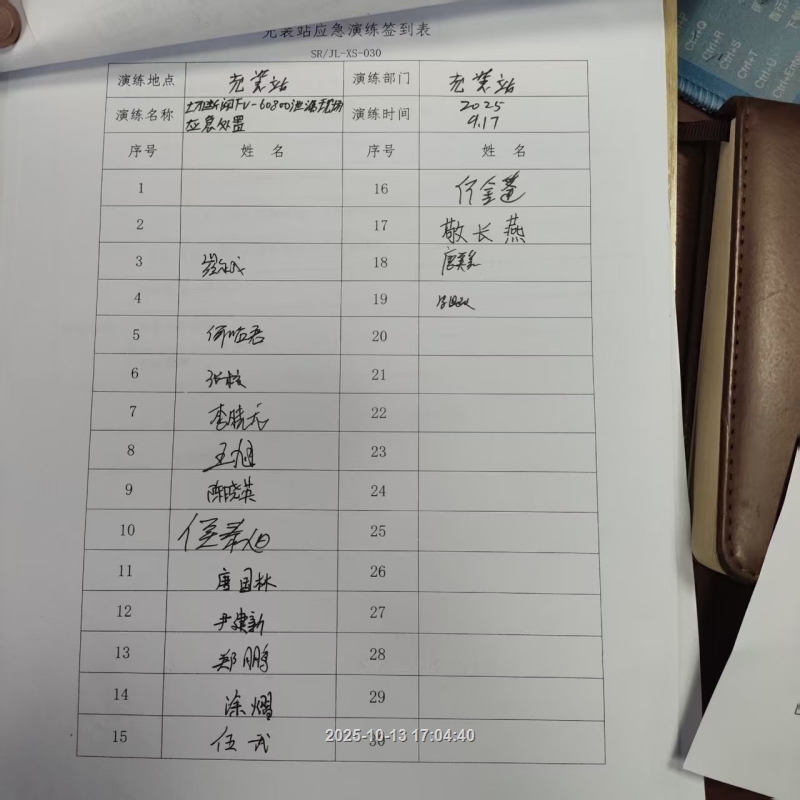 充装站应急演练签到表
SR/JL-XS-030
演练地点 充装站 演练部门 充装站
演练名称 切断阀FV-60800泄漏现场 应急处置 演练时间 2025 9.17
序号 姓 名 序号 姓 名
1 16
2 17 敬长燕
3 18
4 19
5 20
6 21
7 李晓元 22
8 王旭 23
9 陈晓英 24
10 25
11 唐国林 26
12 尹建新 27
13 郑鹏 28
14 涂熠 29
15 伍武 30
2025-10-13 17:04:40
Ctrl+Q
Ctrl+R
Ctrl+S
Ctrl+T
Ctrl+U